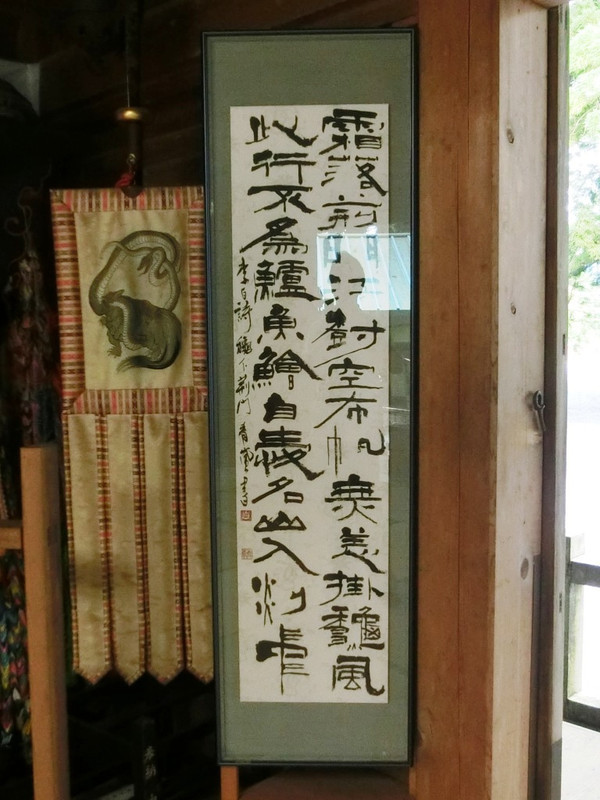 霜落荊門江樹空布帆無恙掛龝風
此行不爲鱸魚鱠自愛名山入剡中
李白詩 龝下荊門 書
奉納